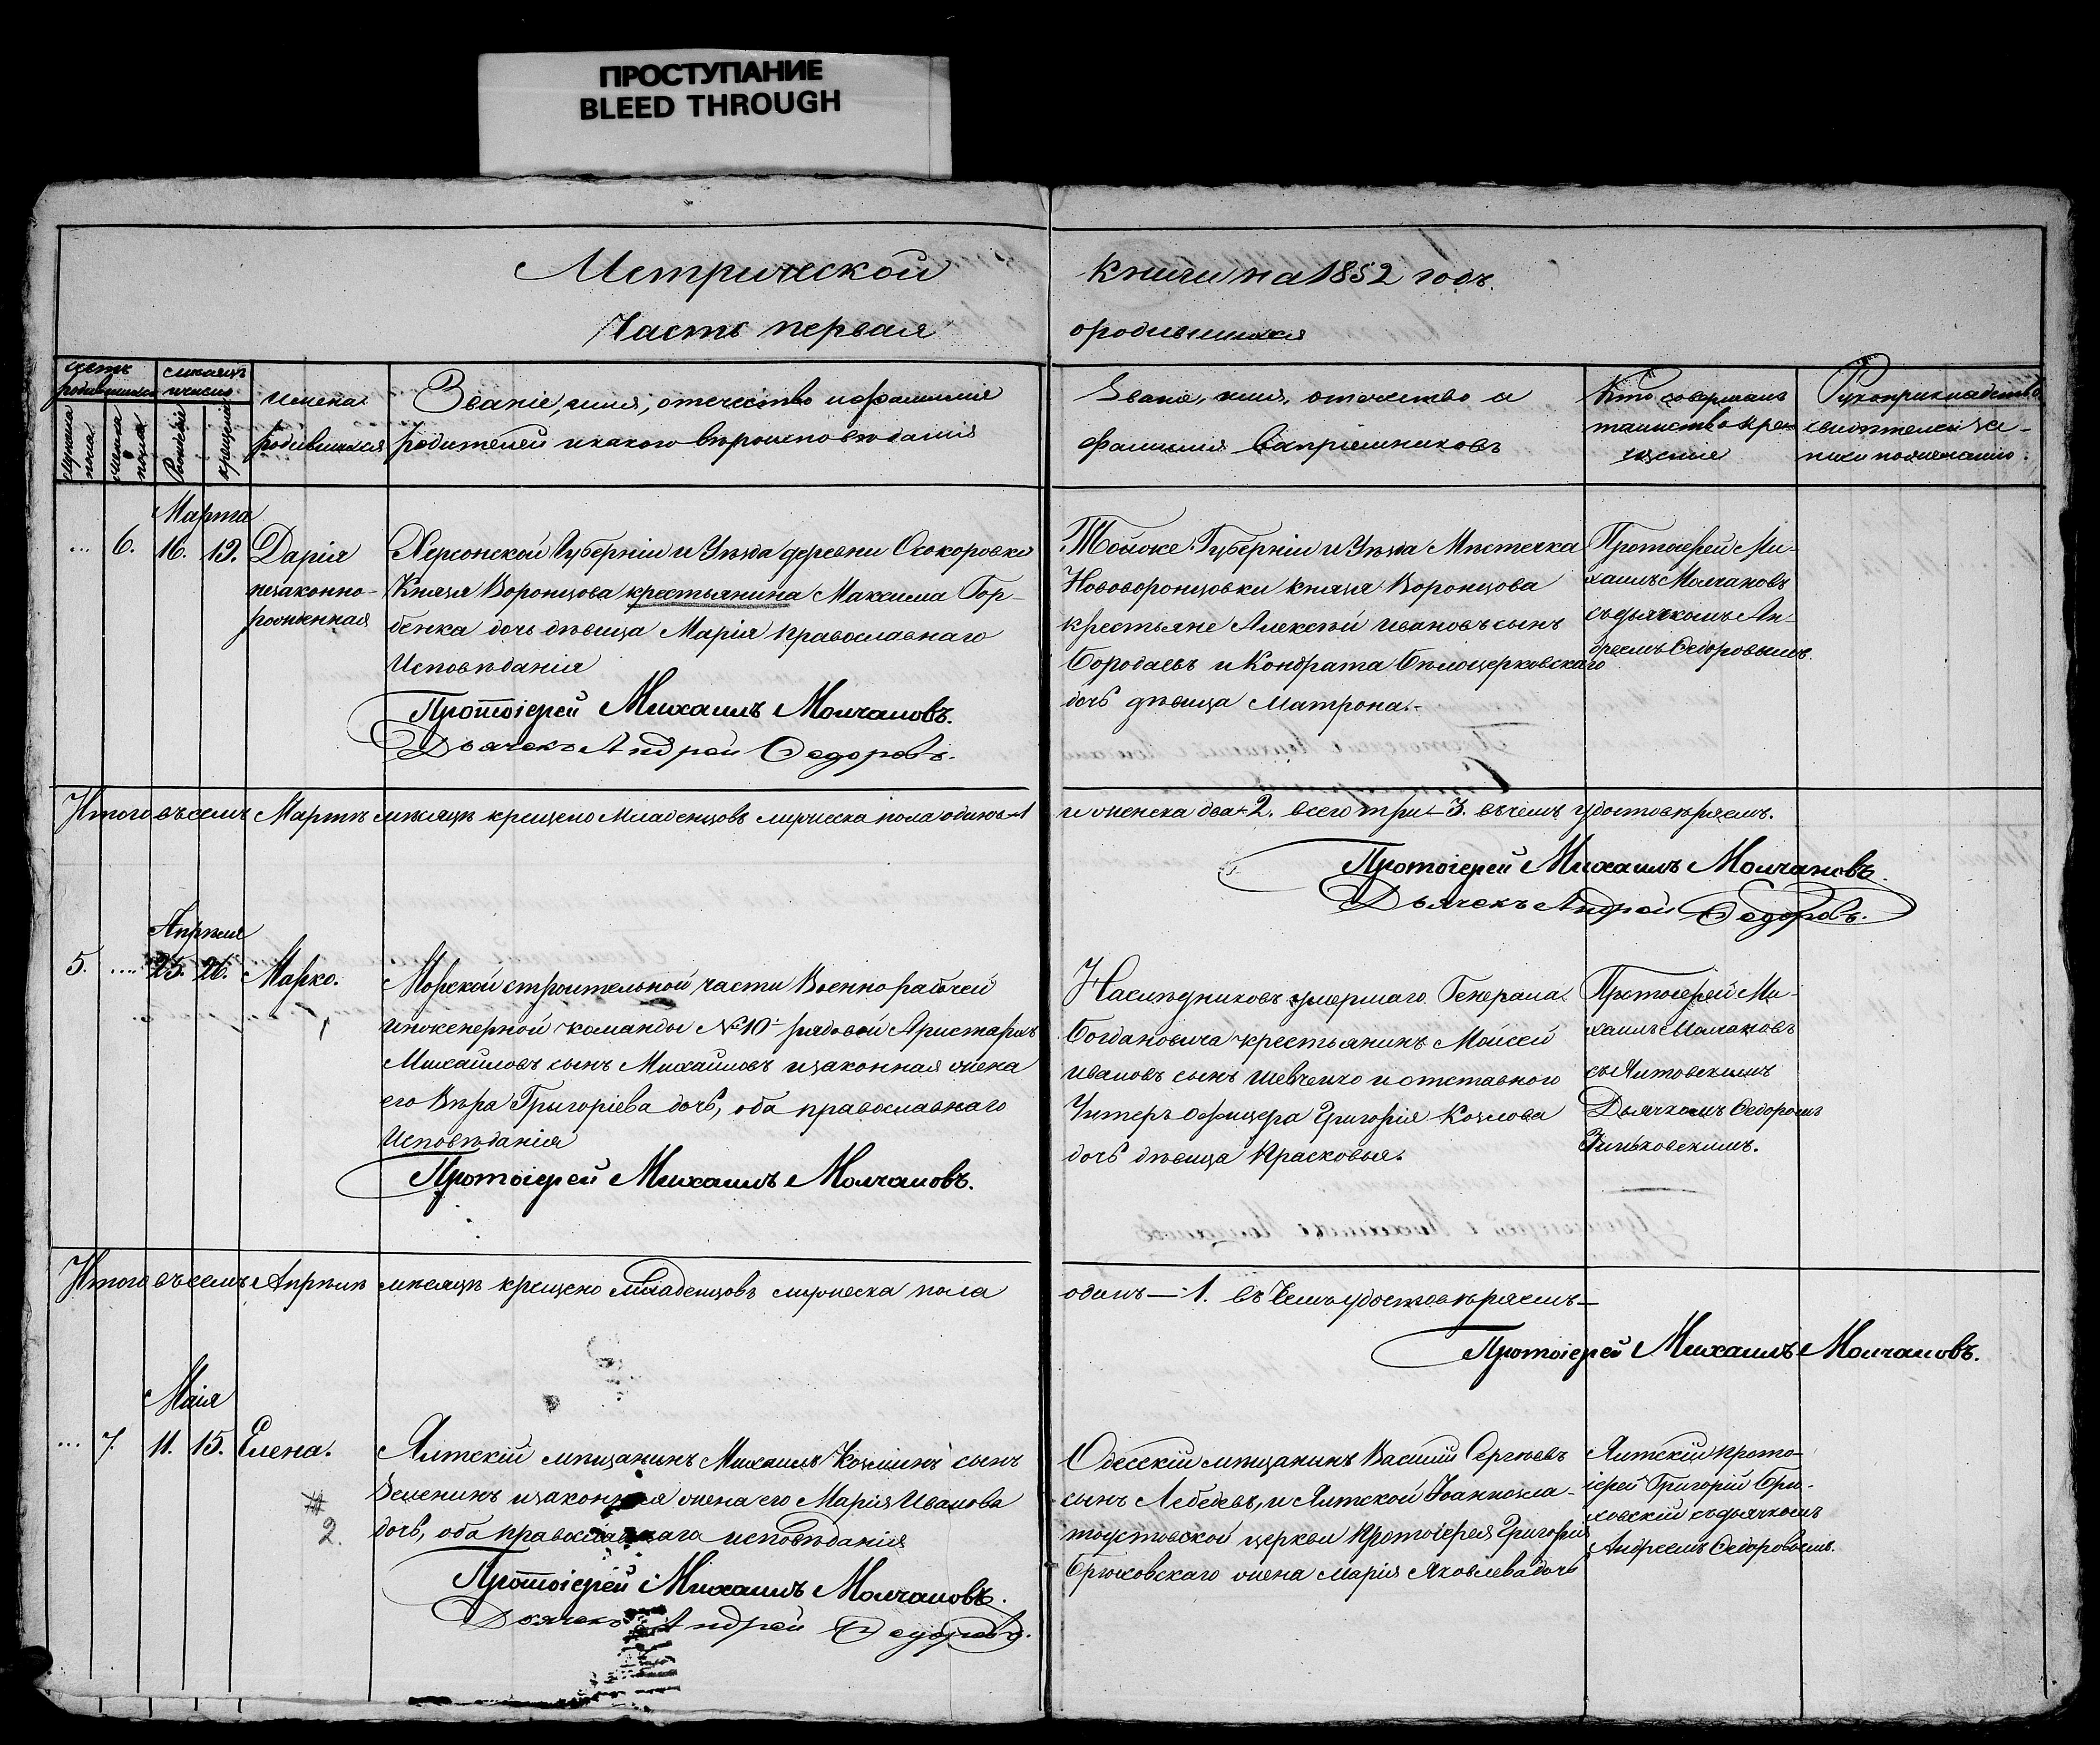 ПРОСТУПАНИЕ
BLEED THROUGH
Метрической книги на 1852 годъ.
Часть первая о родившихся
счетъ родившихся
мужеска пола
женска пола
месяцъ и число
Рожденія
крещенія
имена
родившихся
Званіе, имя, отечество и фамилія
родителей и какого вѣроисповѣданія
Званіе, имя, отечество и
фамилія Воспріемниковъ
Кто совершалъ
таинство кре-
щенія
Рукоприкладство
свидѣтелей за-
писи по желанію.
Марта
... 6. 16. 19. Дарія
незаконно-
рожденная
Херсонской Губерніи и Уѣзда деревни Осокоровки
Князя Воронцова крестьянина Максима Гор-
бенка дочь дѣвица Марія православнаго
Исповѣданія
Протоіерей Михаилъ Молчановъ.
Дьячекъ Андрей Федоровъ.
Тойже Губерніи и Уѣзда Мѣстечка
Нововоронцовки князя Воронцова
крестьяне Алексѣй Ивановъ сынъ
Бородаевъ и Кондрата Бѣлоцерковскаго
дочь дѣвица Матрона.-
Протоіерей Ми-
хаилъ Молчановъ
съ дьячкомъ Ан-
дреемъ Федоровымъ.
Итого въ семъ Мартѣ мѣсяцѣ крещено Младенцовъ мужеска пола одинъ-1
и женска два-2. всего три-3. въ чемъ удостовѣряемъ.
Протоіерей Михаилъ Молчановъ.
Дьячекъ Андрей Федоровъ.
Апрѣля
5. .... 25. 26. Марко.
1
Морской строительной части Военно рабочей
инженерной команды №10й рядовой Аристархъ
Михайловъ сынъ Михайловъ и законная жена
его Вѣра Григоріева дочь, оба православнаго
Исповѣданія
Протоіерей Михаилъ Молчановъ.
Наслѣдниковъ умершаго Генерала
Богдановича крестьянинъ Моисей
Ивановъ сынъ Шевченко и отставного
Унтеръ офицера Григорія Козлова
дочь дѣвица Прасковья.
Протоіерей Ми-
хаилъ Молчановъ
съ Ялтовскимъ
Дьячкомъ Федоромъ
Зиньковскимъ.
Итого въ семъ Апрѣлѣ мѣсяцѣ крещено Младенцовъ мужеска пола
одинъ — 1. въ чемъ удостовѣряемъ —
Протоіерей Михаилъ Молчановъ.
Маія
... 7. 11. 15. Елена.
2.
Ялтскій мѣщанинъ Михаилъ Козминъ сынъ
и законная жена его Марія Иванова
дочь, оба православнаго исповѣданія
Протоіерей Михаилъ Молчановъ.
Дьячекъ Андрей Федоровъ.
Одесскій мѣщанинъ Василій Сергѣевъ
сынъ Лебедевъ, и Ялтской Іоаннозла-
тоустовской церкви Протоіерея Григорія
Брюховскаго жена Марія Яковлева дочь
Ялтскій прото-
іерей Григорій Брю-
ховскій съ дьячкомъ
Андреемъ Федоровымъ.